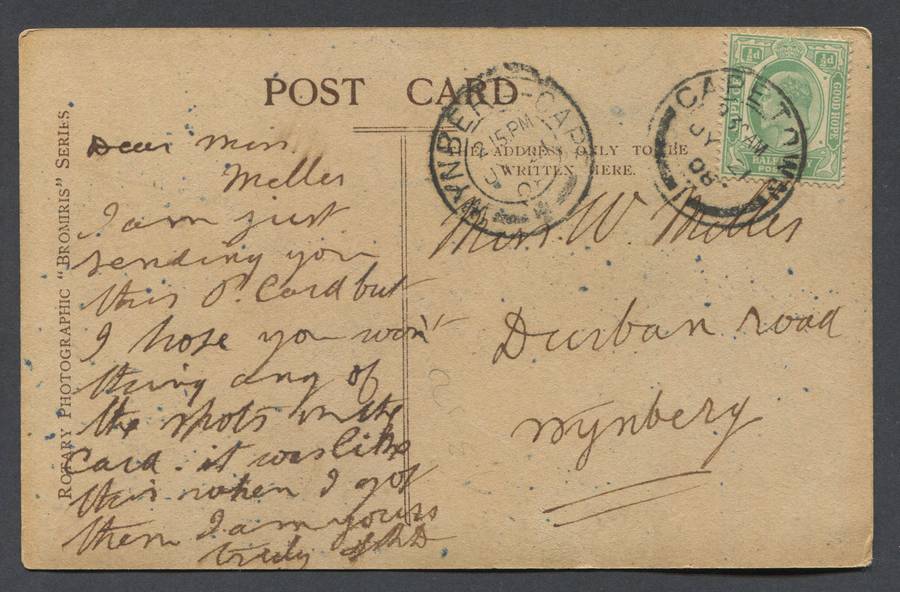 POST CARD
THE ADDRESS ONLY TO BE
WRITTEN HERE.
ROTARY PHOTOGRAPHIC "BROMIRIS" SERIES.
Dear Miss
Melles
I am just
sending you
this P. Card but
I hope you won't
thing any of
the spots on the
Card. it was like
this when I got
them I am yours
truly
Miss. W. Melles
Durban road
Wynberg
WYNBERG-CAPE
2 15 PM
CAPE TOWN
JY
08
GOOD HOPE
HALF
½d
½d